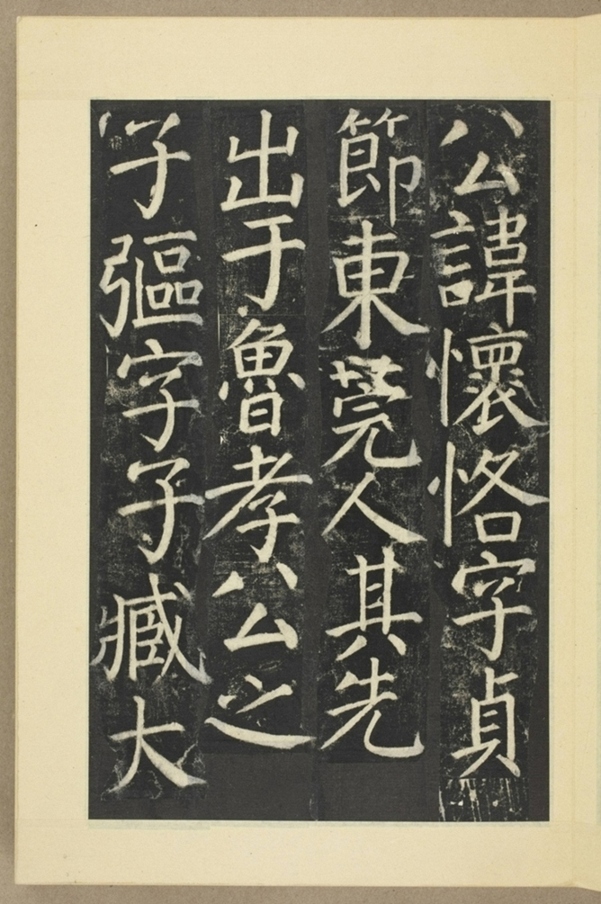 公諱懷恪字貞
節東莞人其先
出于魯孝公之
子彄字子臧大